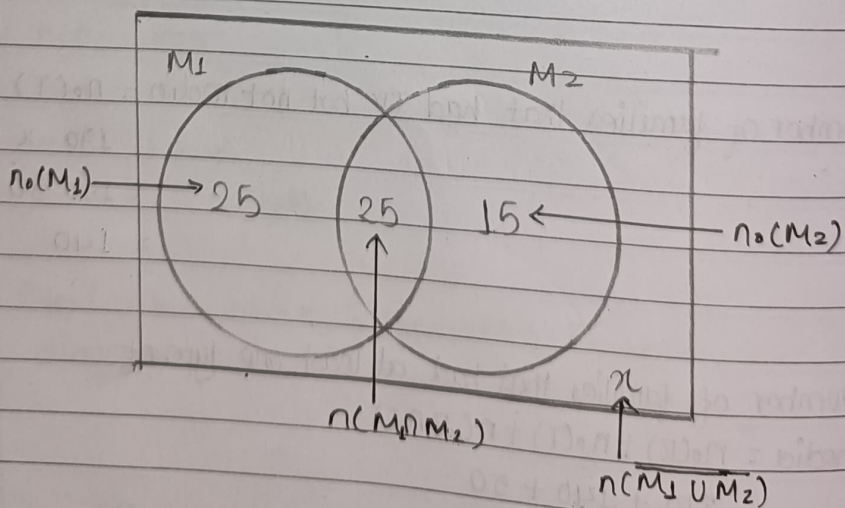 M1 M2
n₀(M1) 25 25 15 n₀(M2)
x
n(M1∩M2)
n(\overline{M1 ∪ M2})